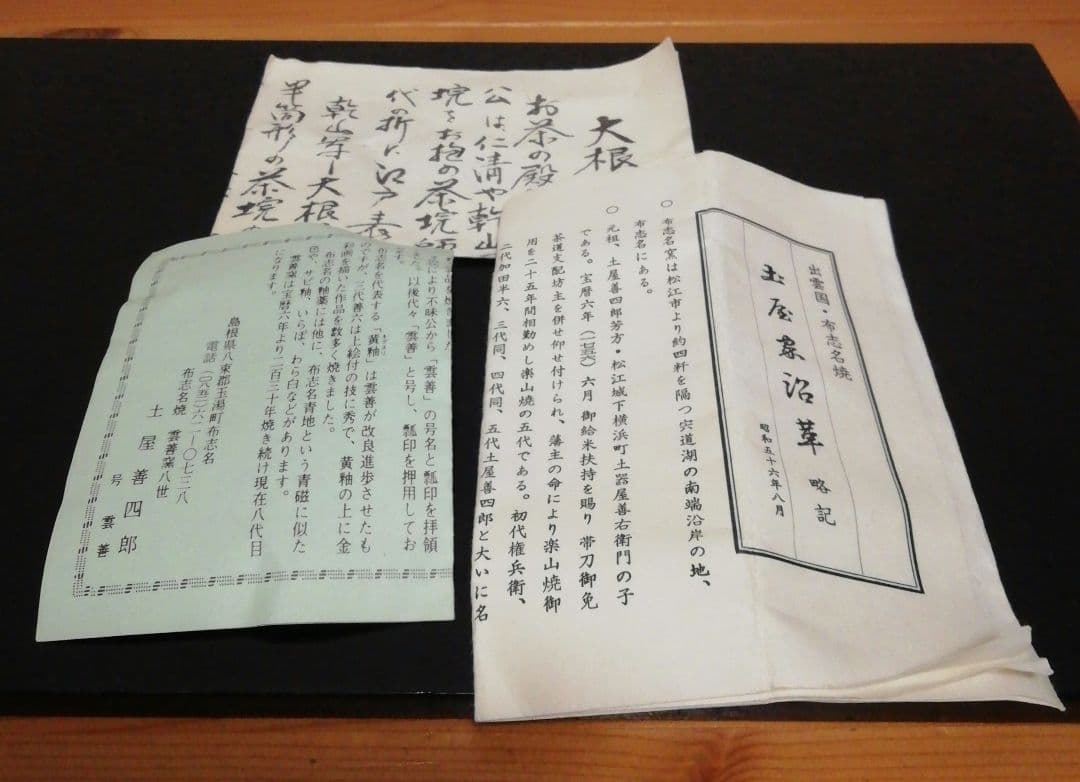 大根
お茶の殿
公は、仁清や乾山
埦をお抱の茶埦師
代の折に江戸表
乾山写し大根
半筒形の茶埦
出雲国・布志名焼
土屋家沿革 略記
昭和五十六年八月
○ 布志名窯は松江市より約四粁を隔つ宍道湖の南端沿岸の地、
布志名にある。
○ 元祖、土屋善四郎芳方・松江城下横浜町土器屋善右衛門の子
である。宝暦六年(一七五六)六月 御給米扶持を賜り 帯刀御免
茶道支配坊主を併せ仰せ付けられ、藩主の命により楽山焼御
用を二十五年間相勤めし楽山焼の五代である。初代権兵衛、
二代加田半六、三代同、四代同、五代土屋善四郎と大いに名
により不昧公から「雲善」の号名と瓢印を拝領
以後代々「雲善」と号し、瓢印を押用してお
布志名を代表する「黄釉」は雲善が改良進歩させたも
のですが、三代善六は上絵付の技に秀で、黄釉の上に金
彩画を描いた作品を数多く焼きました。
布志名の釉薬には他に、布志名青地という青磁に似た
色や、サビ釉、いらぼ、わら白などがあります。
雲善窯は宝暦六年より二百三十年焼き続け現在八代目
になります。
島根県八束郡玉湯町布志名
電話(〇八五二)六二-〇七三八
布志名焼 雲善窯八世
土屋善四郎
号 雲善